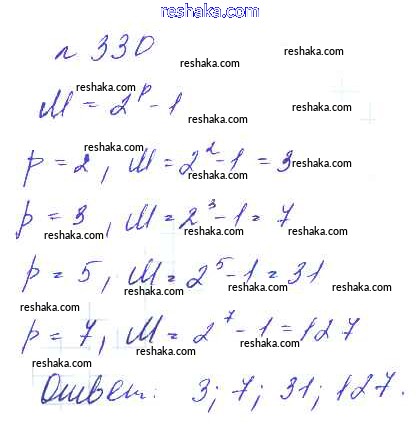 reshaka.com
n 330
reshaka.com reshaka.com
reshaka.com
M = 2^p - 1
reshaka.com
reshaka.com
p = 2, M = 2^2 - 1 = 3
reshaka.com reshaka.com
p = 3, M = 2^3 - 1 = 7
reshaka.com reshaka.com reshaka.com
p = 5, M = 2^5 - 1 = 31
reshaka.com reshaka.com
reshaka.com reshaka.com
p = 7, M = 2^7 - 1 = 127
reshaka.com reshaka.com
reshaka.com
Ответ: 3; 7; 31; 127.
reshaka.com